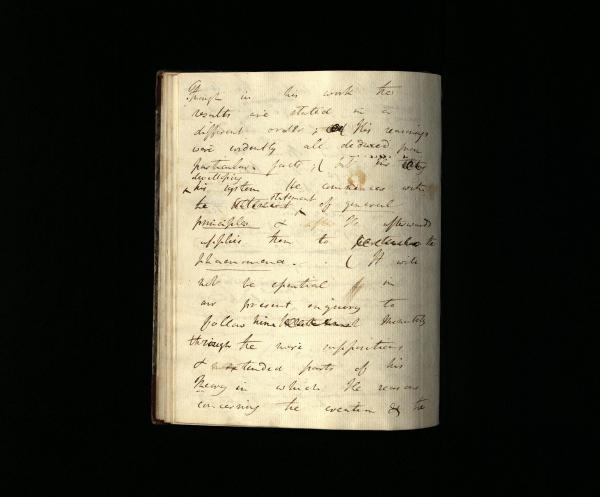 Though in his work the
results are stated in a
different order; His reasonings
were evidently all deduced from
particular facts; ( but in
developing
his system He commences with
statement
the of general
principles & He afterwards
applies them to the
phaenomena. . ( It will
not be essential in
our present enquiry to
follow him minutely
through the more suppositious
& extended parts of his
Theory in which He reasons
concerning the creation & the